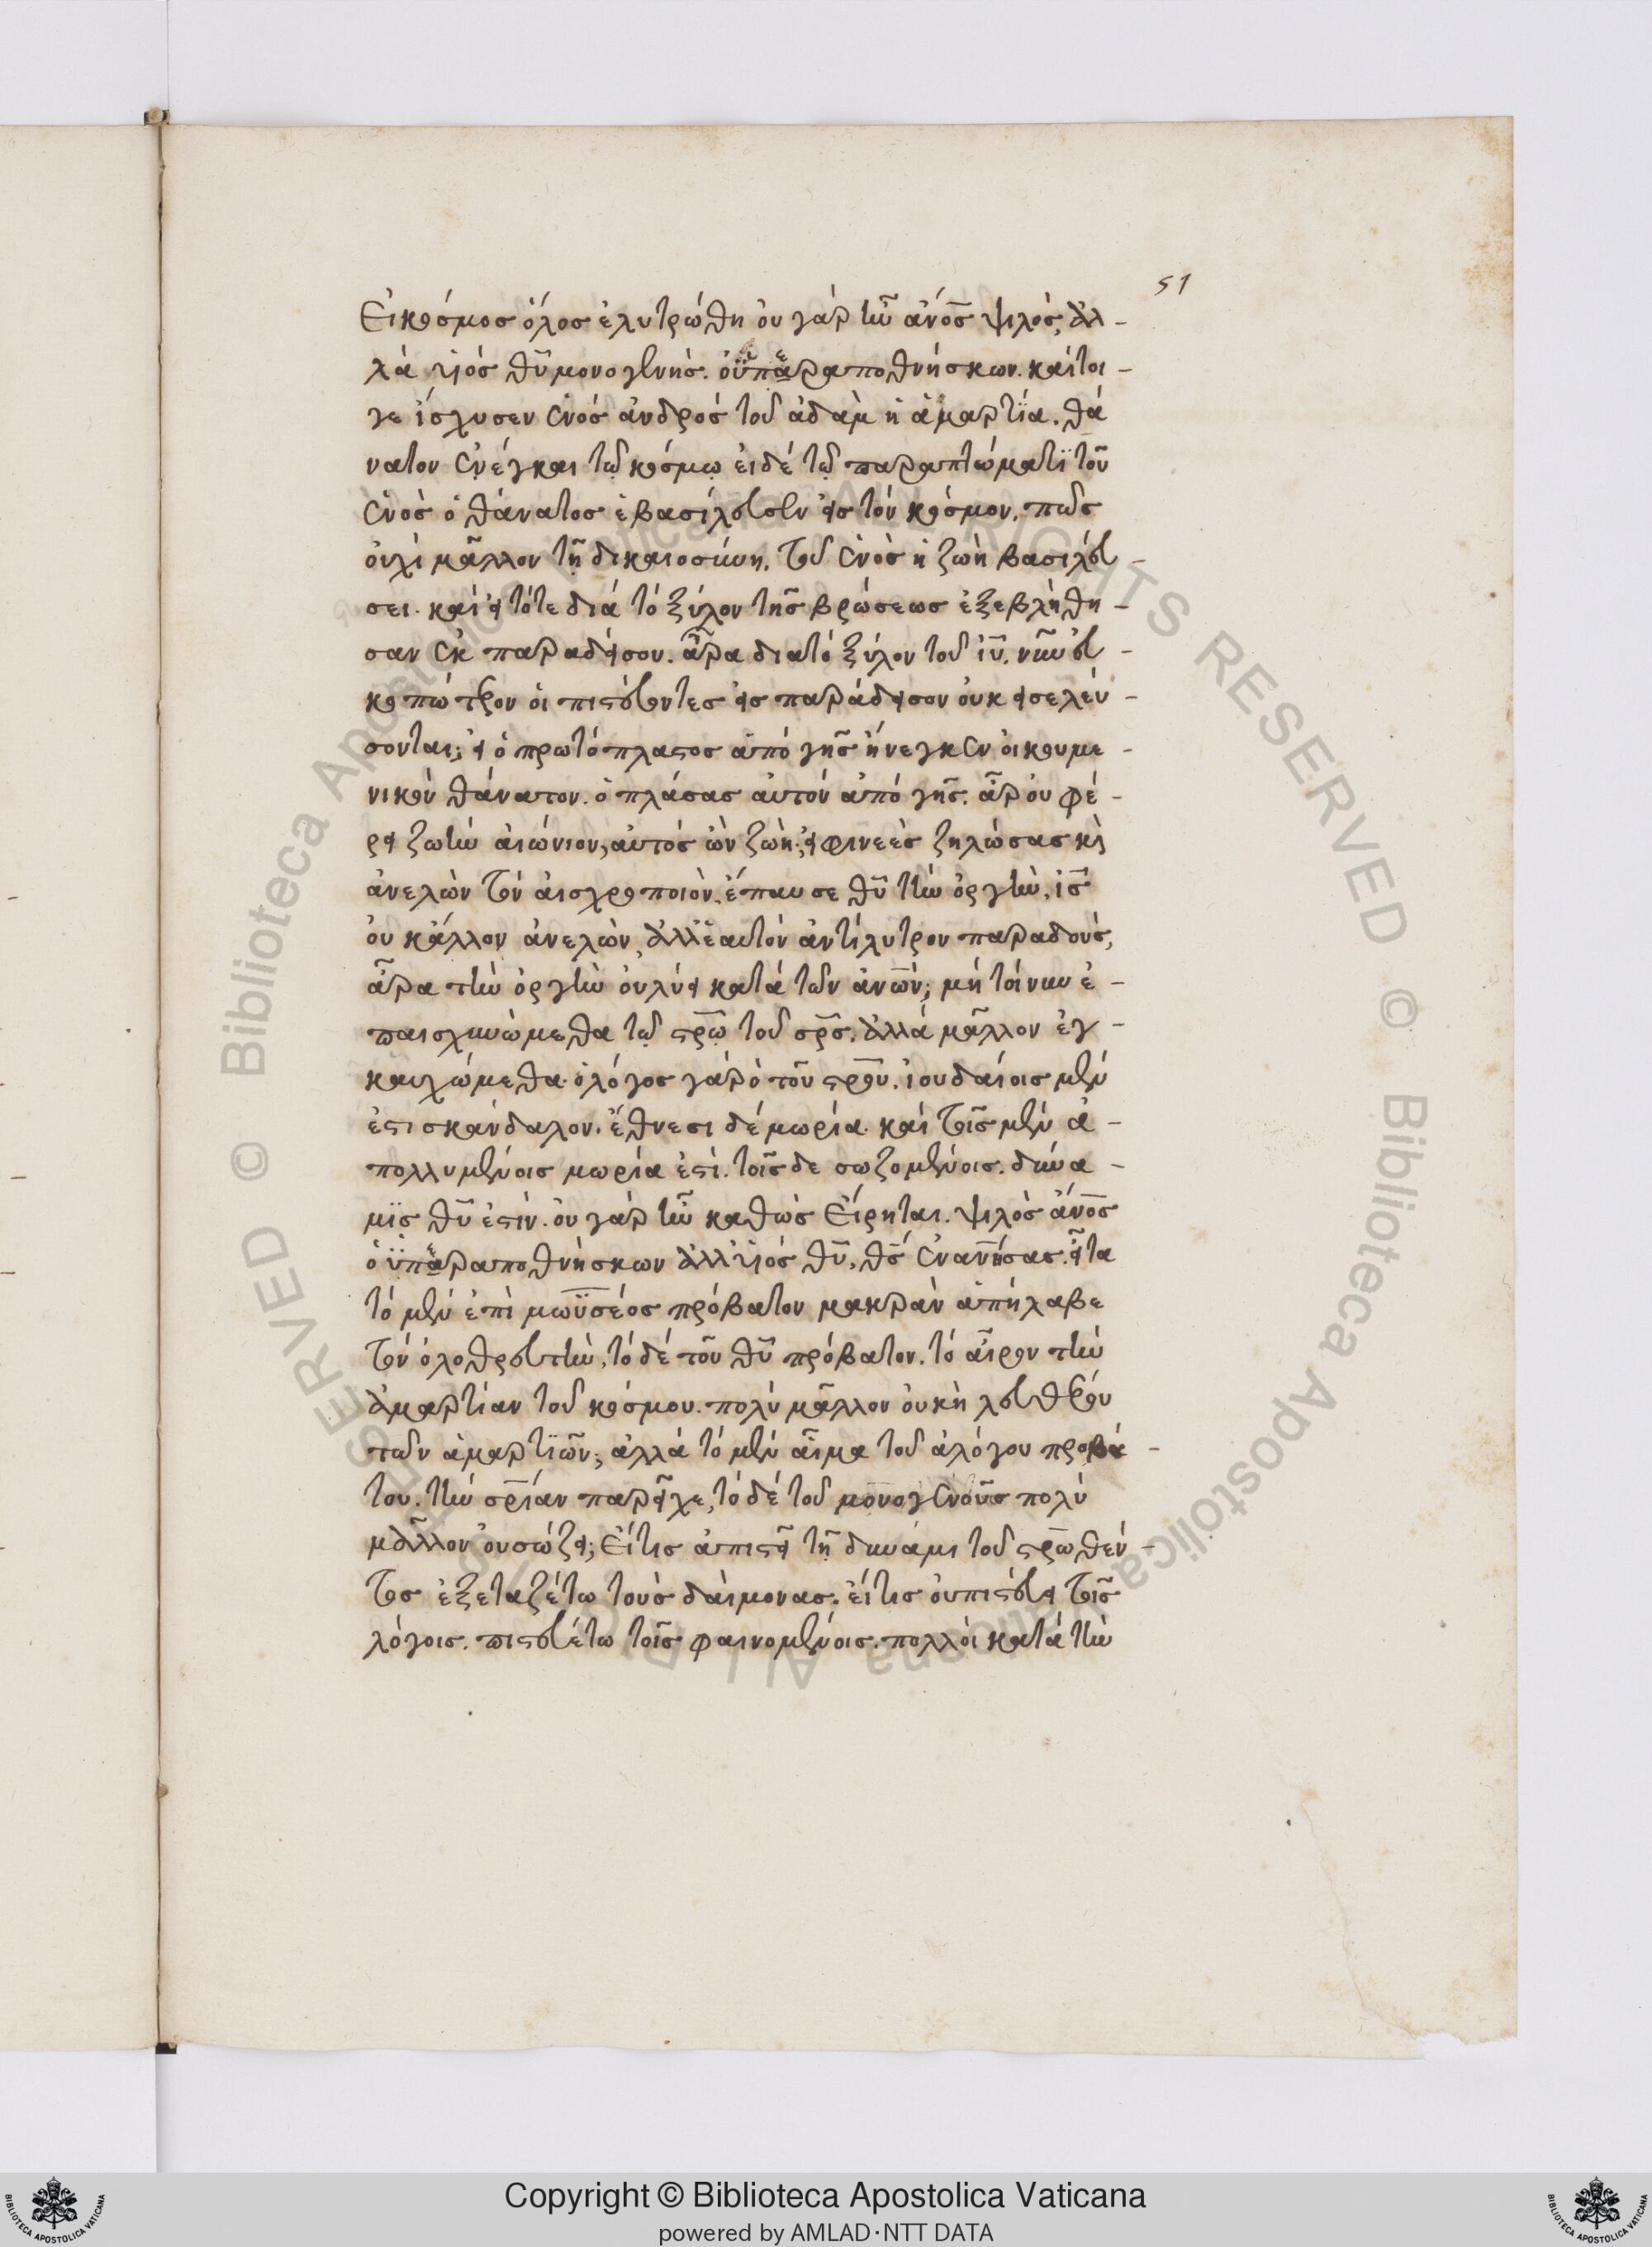 51
Εἰ κόσμος ὅλος ἐλυτρώθη οὐ γὰρ ἦν ἄν̅ο̅ς̅ ψιλός, ἀλ-
λὰ υἱός θ̅υ̅ μονογενής. ὁ ὑπεραποθνήσκων. καίτοι-
γε ἴσχυσεν ἑνός ἀνδρός τοῦ ἀδὰμ ἡ ἁμαρτία. θά
νατον ἐνέγκαι τῷ κόσμῳ εἰ δέ τῷ παραπτώματϊ τοῦ
ἑνὸς ὁ θάνατος ἐβασίλευσεν εἰς τόν κόσμον. πῶς
οὐχὶ μᾶλλον τῇ δικαιοσύνῃ. τοῦ ἑνὸς ἡ ζωὴ βασιλεύ-
σει. καὶ εἰ τότε διά τό ξύλον τῆς βρώσεως ἐξεβλήθη-
σαν ἐκ παραδείσου. ἆρα διατό ξύλον τοῦ ἰ̅υ̅. νῦν εὐ-
κοπώτερον οἱ πιστεύοντες εἰς παράδεισον οὐκ εἰσελεύ-
σονται; εἰ ὁ πρωτόπλαστος ἀπό γῆς ἤνεγκεν οἰκουμε-
νικὸν θάνατον. ὁ πλάσας αὐτόν ἀπό γῆς. ἆρ οὐ φέ-
ρει ζωὴν αἰώνιον, αὐτός ὢν ζωή; εἰ φινεὲς ζηλώσας κὶ
ἀνελὼν τόν αἰσχροποιὸν, ἔπαυσε θ̅υ̅ τὴν ὀργὴν. ἰ̅ς̅
οὐκ ἄλλον ἀνελὼν, ἀλλ' ἑαυτόν ἀντίλυτρον παραδούς,
ἆρα τὴν ὀργὴν οὐ λύει κατά τῶν ἀν̅ω̅ν̅; μή τοίνυν ἐ-
παισχυνώμεθα τῷ στ̅ρ̅ῳ̅ τοῦ σ̅ρ̅ς̅. ἀλλά μᾶλλον ἐγ-
καυχώμεθα. ὁ λόγος γάρ ὁ τοῦ στ̅ρ̅ο̅υ̅. ἰουδαίοις μέν
ἐστι σκάνδαλον. ἔθνεσι δέ μωρία. καὶ τοῖς μέν ἀ-
πολλυμένοις μωρία ἐστί. τοῖς δε σωζομένοις. δύνα-
μϊς θ̅υ̅ ἐστίν. οὐ γὰρ ἦν καθὼς Εἴρηται. ψιλὸς ἄν̅ο̅ς̅
ὁ ὑπεραποθνήσκων ἀλλ' υἱός θ̅υ̅, θ̅ς̅ ἐναν̅ή̅σας. εἶτα
τό μέν ἐπὶ μωϋσέος πρόβατον μακρὰν ἀπήλαβε
τόν ὀλοθρευτὴν, τό δέ τοῦ θ̅υ̅ πρόβατον. τό αἶρον τὴν
ἁμαρτίαν τοῦ κόσμου. πολύ μᾶλλον οὐκ ἠλευθέρου
τῶν ἁμαρτϊῶν; ἀλλά τό μέν αἷμα τοῦ ἀλόγου προβά-
του. τὴν σ̅ρ̅ίαν παρεῖχε, τό δέ τοῦ μονογενοῦς πολύ
μᾶλλον οὐ σώζει; Εἴ τις ἀπιστεῖ τῇ δυνάμι τοῦ στ̅ρ̅ω̅θέν-
τος ἐξεταζέτω τοὺς δαίμονας. εἴ τις οὐ πιστεύει τοῖς
λόγοις. πιστευέτω τοῖς φαινομένοις. πολλοὶ κατά τὴν
Copyright © Biblioteca Apostolica Vaticana
powered by AMLAD·NTT DATA